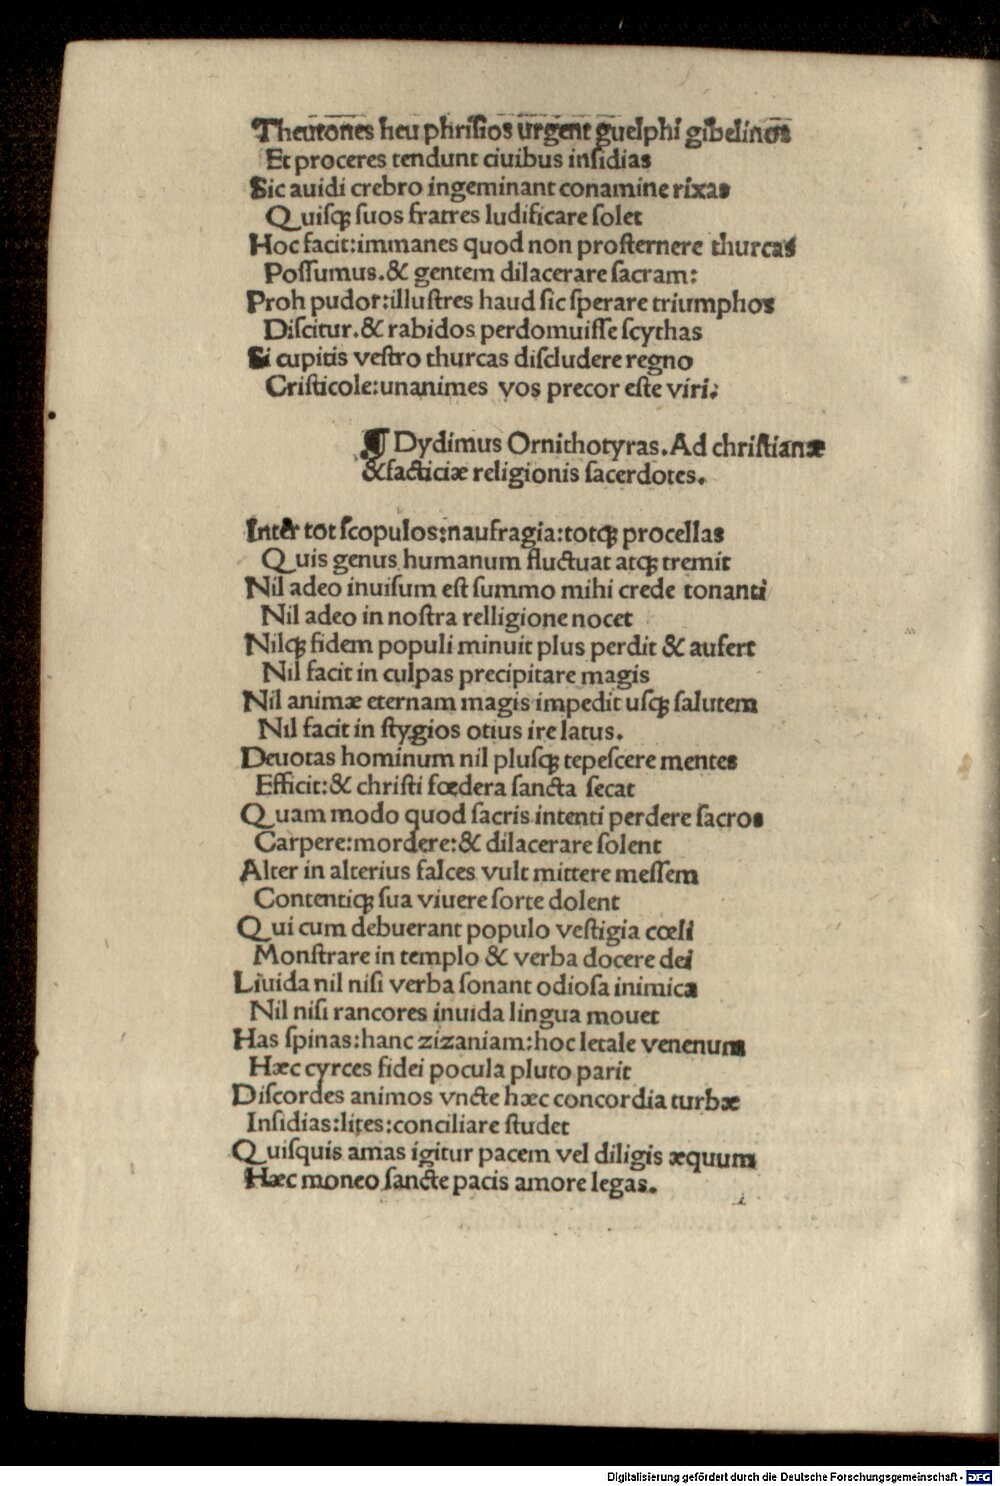 Theutones heu phrisios urgent guelphi gibelinos
Et proceres tendunt ciuibus insidias
Sic auidi crebro ingeminant conamine rixas
Quisqꝫ suos fratres ludificare solet
Hoc facit:immanes quod non prosternere thurcas
Possumus.& gentem dilacerare sacram:
Proh pudor:illustres haud sic sperare triumphos
Discitur.& rabidos perdomuisse scythas
Si cupitis vestro thurcas discludere regno
Cristicole:unanimes vos precor este viri:
¶ Dydimus Ornithotyras.Ad christianæ
&facticiæ religionis sacerdotes.
Inter tot scopulos:naufragia:totqꝫ procellas
Quis genus humanum fluctuat atqꝫ tremit
Nil adeo inuisum est summo mihi crede tonanti
Nil adeo in nostra relligione nocet
Nilqꝫ fidem populi minuit plus perdit & aufert
Nil facit in culpas precipitare magis
Nil animæ eternam magis impedit usqꝫ salutem
Nil facit in stygios otius ire latus.
Deuotas hominum nil plusqꝫ tepescere mentes
Efficit:& christi fœdera sancta secat
Quam modo quod sacris intenti perdere sacros
Carpere:mordere:& dilacerare solent
Alter in alterius falces vult mittere messem
Contentiqꝫ sua viuere sorte dolent
Qui cum debuerant populo vestigia cœli
Monstrare in templo & verba docere dei
Liuida nil nisi verba sonant odiosa inimica
Nil nisi rancores inuida lingua mouet
Has spinas:hanc zizaniam:hoc letale venenum
Hæc cyrces fidei pocula pluto parit
Discordes animos vncte hæc concordia turbæ
Insidias:lites:conciliare studet
Quisquis amas igitur pacem vel diligis æquum
Hæc moneo sancte pacis amore legas.
Digitalisierung gefördert durch die Deutsche Forschungsgemeinschaft - DFG